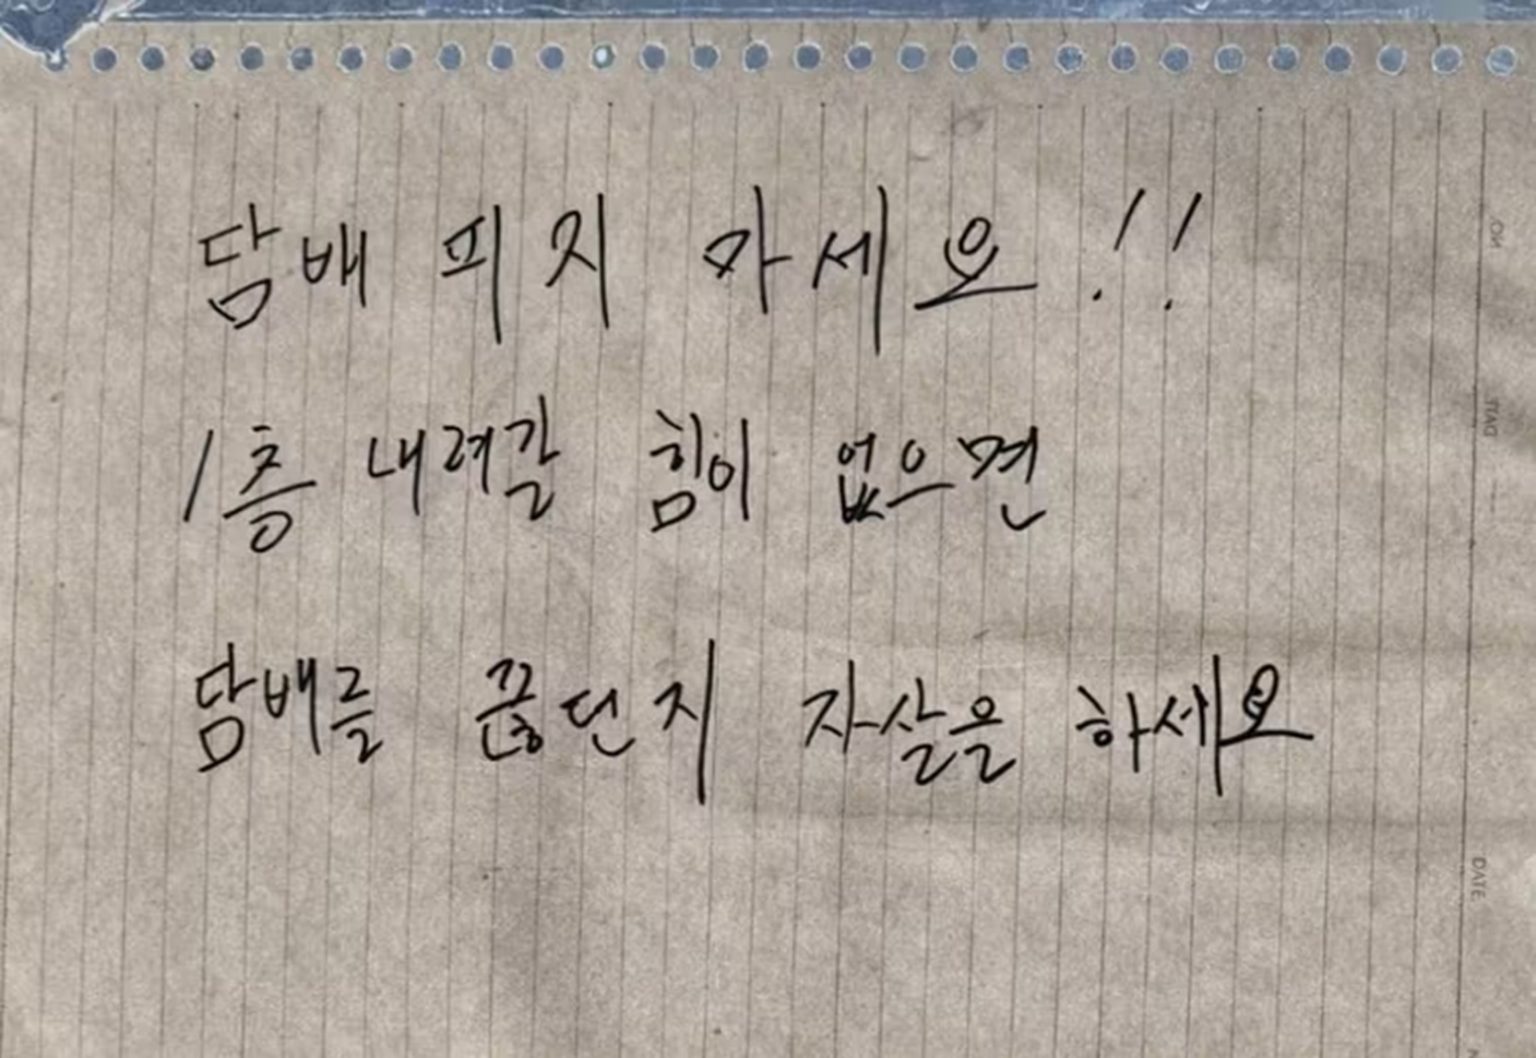 담배 피지 마세요!!
1층 내려갈 힘이 없으면
담배를 끊던지 자살을 하세요
NO
DATE
DATE